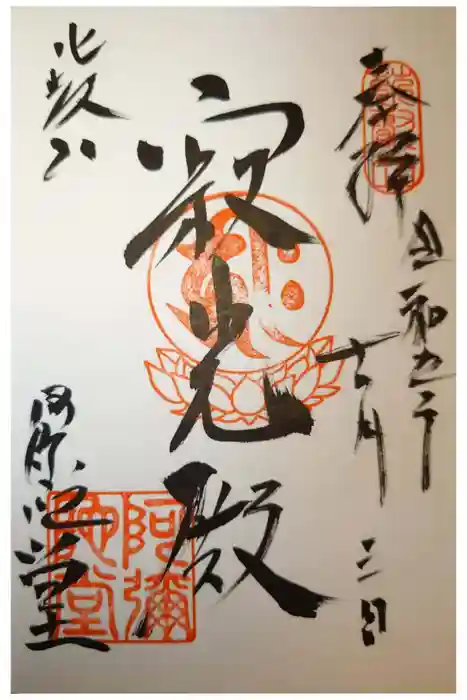 奉拝
令和五年
十一月
三日
寂光殿
比叡山
阿弥陀堂
阿彌
陀堂